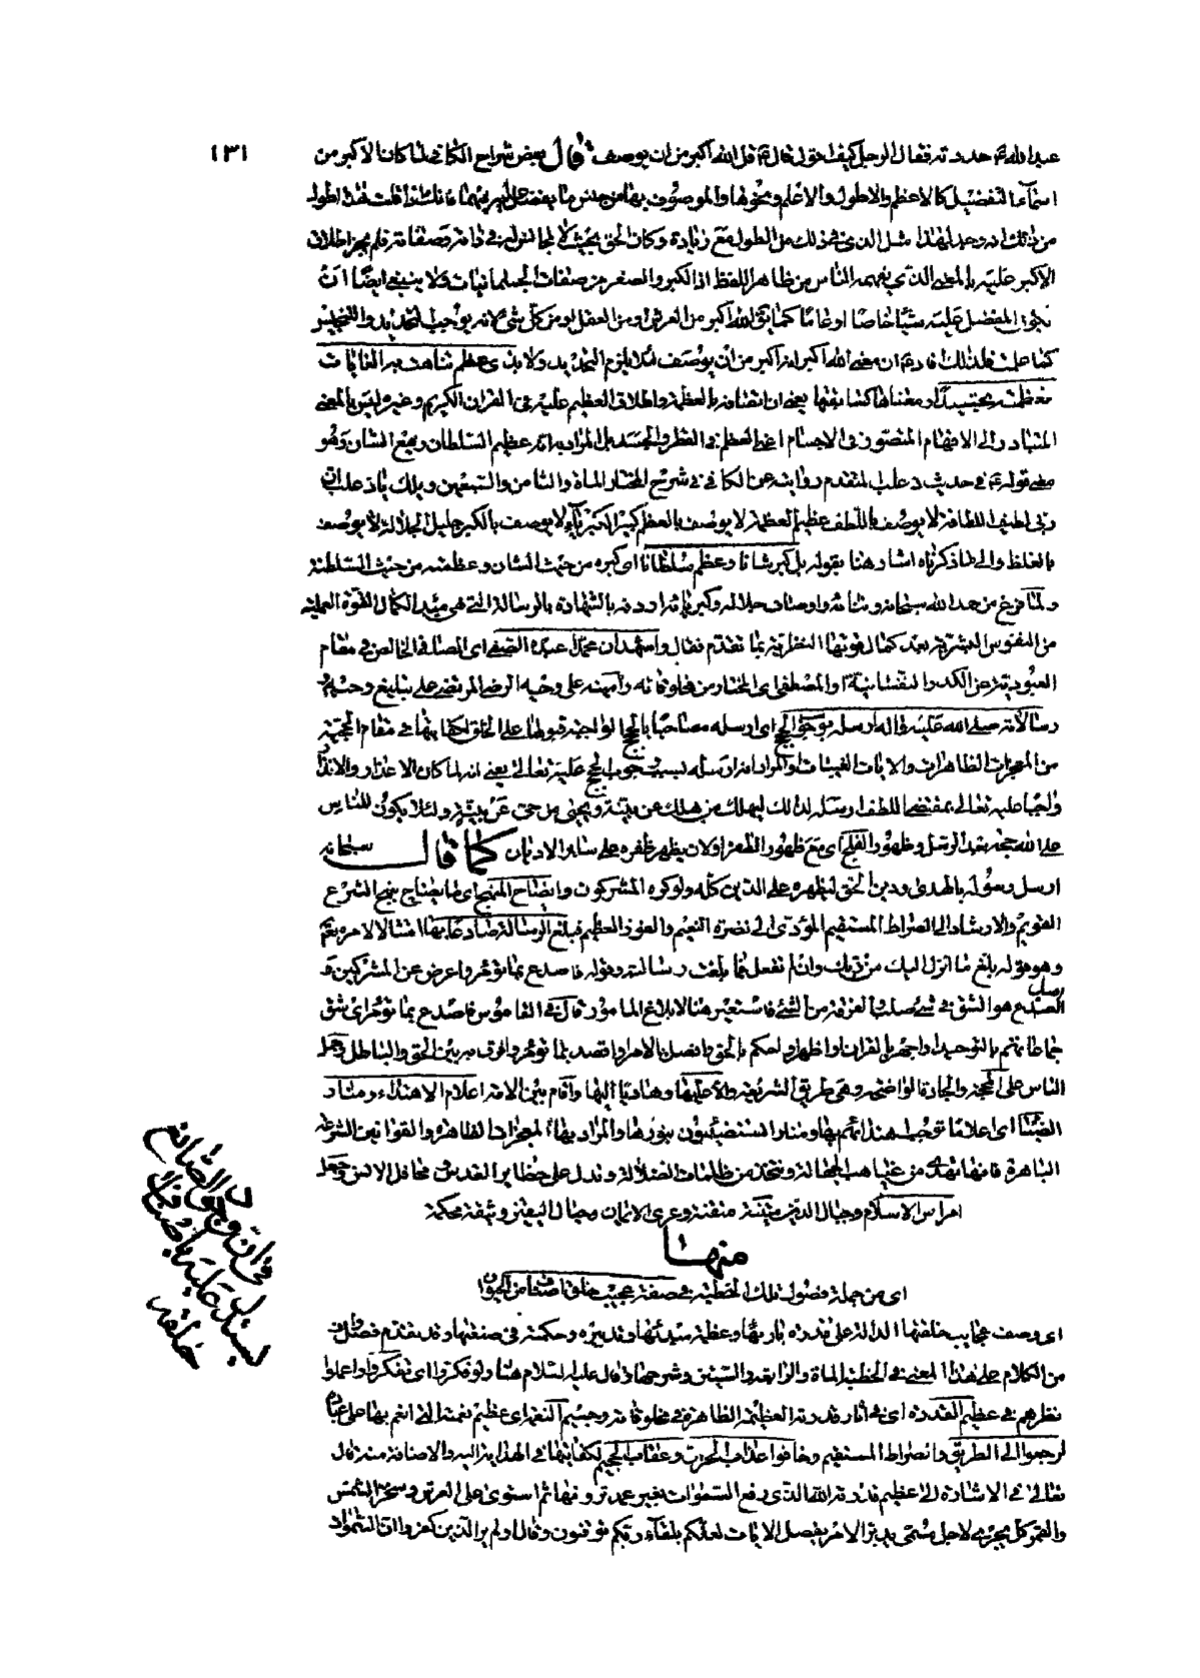 ١٣١
عبد الله ع حددته فقال الرجل كيف اقول قال ع قل الله اكبر من ان يوصف قال بعض شراح الكافي لما كان الاكبر من
اسماء التفضيل كالاعظم والاطول والاعلم ونحوها والموصوف بها من جنس ما يفضل عليه فيهما فانك اذا قلت هذا اطول
من ذلك انه وجد لهذا مثل الذي في ذلك من الطول مع زيادة وكان الحق بحيث لا مجانس له في ذاته وصفاته فلم يجز اطلاق
الاكبر عليه بالمعنى الذي يفهمه الناس من ظاهر اللفظ اذ الكبر والصغر من صفات الجسمانيات ولا ينبغي ايضا ان
يكون المفضل عليه شيئا خاصا او عاما كما يقال الله اكبر من العرش او من العقل او من كل شيء لانه يوجب التحديد والتجنيس
كما علمت فلذلك قال ع ان معنى الله اكبر انه اكبر من ان يوصف لئلا يلزم التحديد ولا بذي عظم تناهت به الغايات
فعظمته تجسيدا ومعناها كسابقها يعني ان اتصافه بالعظمة واطلاق العظيم عليه في القرآن الكريم وغيره ليس بالمعنى
المتبادر الى الافهام المتصور في الاجسام اعني العظم في القطر والجسد بل المراد به انه عظيم السلطان رفيع الشان وهو
معنى قوله ع في حديث ذعلب المتقدم روايته عن الكافي في شرح المختار المأة والثامن والسبعين ويلك يا ذعلب ان
ربى لطيف اللطافة لا يوصف باللطف عظيم العظمة لا يوصف بالعظم كبير الكبرياء لا يوصف بالكبر جليل الجلالة لا يوصف
بالغلظ والى ما ذكرناه اشار هنا بقوله بل كبر شانا وعظم سلطانا اى كبره من حيث الشان وعظمته من حيث السلطنة
ولما فرغ من حمد الله سبحانه وثنائه واوصاف جلاله وكبريائه اردفه بالشهادة بالرسالة التي هي مبدء الكمال القوة العملية
من النفوس البشرية بعد كمال قوتها النظرية بما تقدم فقال واشهد ان محمدا عبده الصفى اى الصافي الخالص في مقام
العبودية عن الكدر النفسانية او المصطفى اى المختار من مخلوقاته وامينه على وحيه الرضى المرتضى على تبليغ وحيه و
رسالاته صلى الله عليه وآله ارسله بوجوب الحجج اى ارسله مصاحبا بالحجج الواجبة قبولها على الخلق لكفايتها في مقام الحجية
من المعجزات الظاهرات والايات البينات او المراد انه ارسله بسبب وجوب الحجج عليه تعالى يعني انه لما كان الاعذار والانذار
واجبا عليه تعالى بمقتضى اللطف ارسله لذلك ليهلك من هلك عن بينة ويحيى من حي عن بينة ولئلا يكون للناس
على الله حجة بعد الرسل وظهور الفلج اى مع ظهور الظفر او لان يظهر ظفره على سائر الاديان كما قال سبحانه
ارسل رسوله بالهدى ودين الحق ليظهره على الدين كله ولو كره المشركون وايضاح المنهج اى لايضاح نهج الشرع
القويم والارشاد الى الصراط المستقيم المؤدى الى نضرة النعيم والفوز العظيم فبلغ الرسالة صادعا بها امتثالا لامره نعم
وهو قوله بلغ ما انزل اليك من ربك وان لم تفعل فما بلغت رسالته وقوله فاصدع بما تؤمر واعرض عن المشركين و
اصل
الصدع هو الشق في شيء صلب او الفرقة من الشيء فاستعير هنا لابلاغ المامور قال في القاموس فاصدع بما تؤمر اى شق
جماعاتهم بالتوحيد او اجهر بالقرآن او اظهر او احكم بالحق وافصل بالامر او اقصد بما تؤمر او افرق به بين الحق والباطل وحمل
الناس على المحجة والجادة الواضحة وهي طريق الشريعة دالا عليها وهاديا اليها واقام بين الامة اعلام الاهتداء ومنار
الضياء اى اعلاما توجب اهتدائهم بها ومنارا لستضيئون بنورها والمراد بها المعجزات الظاهرة والقوانين الشرعية
الباهرة فانها تهدى من غياهب الجهالة وتنقذ من ظلمات الضلالة وتدل على حظاير القدس ومحافل الانس وجعل
امراس الاسلام وحبال الدين متينة متقنة وعرى الايمان وحبال اليقين وثيقة محكمة
منها
اى من جملة فصول تلك الخطبة في صفة عجيب خلق اصناف من الحيوان
اى وصف عجايب خلقتها الدالة على قدرة بارئها وعظمة مبدئها وتدبيره وحكمته في صنعتها وقد تقدم فصل واف
من الكلام على هذا المعنى في الخطبة المأة والرابعة والستين وشرحها قال عليه السلام هنا ولو فكروا اى تفكروا واعملوا
نظرهم في عظيم القدرة اى في آثار قدرته العظيمة الظاهرة في مخلوقاته وجسيم النعمة اى عظيم نعمته التي انعم بها على عباده
لرجعوا الى الطريق والصراط المستقيم وخافوا عذاب الحريق وعقاب الجحيم لكفايتها في الهداية اليه والاضافة منه قال
تعالى في الاشارة الى عظيم قدرته الله الذى رفع السموات بغير عمد ترونها ثم استوى على العرش وسخر الشمس
والقمر كل يجرى لاجل مسمى يدبر الامر يفصل الايات لعلكم بلقاء ربكم توقنون وقال اولم ير الذين كفروا ان السموات